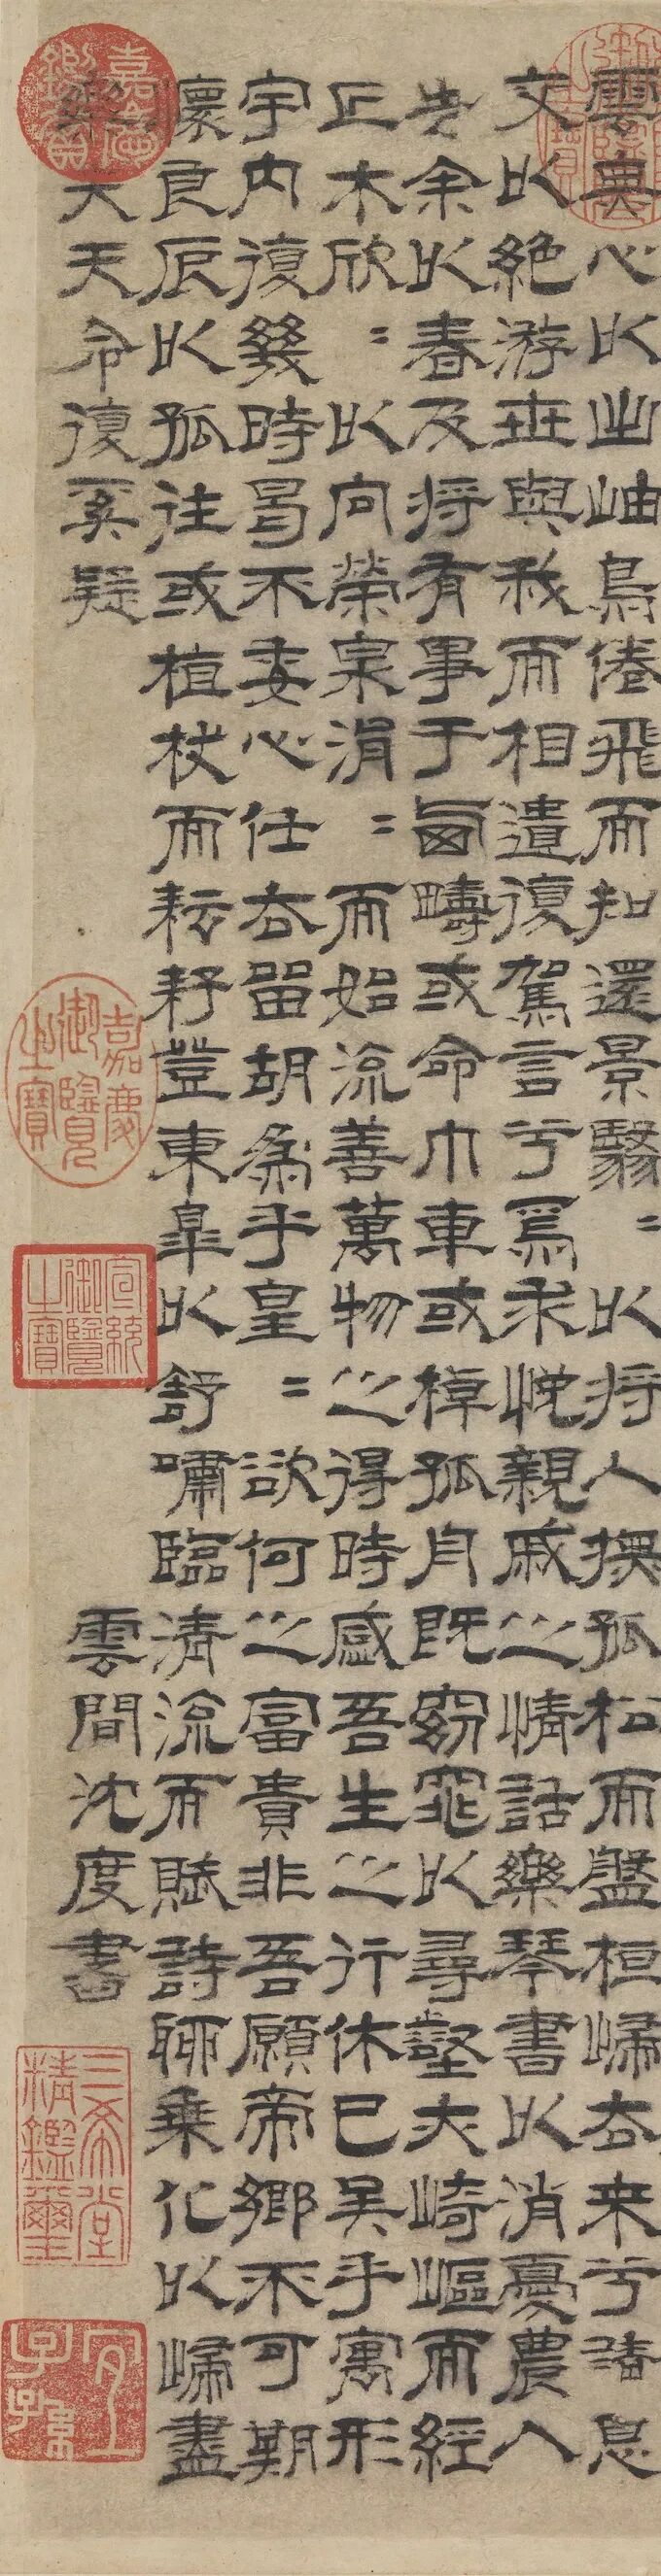 雲無心以出岫鳥倦飛而知還景翳〻以將入撫孤松而盤桓歸去来兮請息
交以絕游世與我而相遺復駕言兮焉求悅親戚之情話樂琴書以消憂農人
告余以春及將有事于西疇或命巾車或棹孤舟既窈窕以尋壑亦崎嶇而經
丘木欣〻以向榮泉涓〻而始流善萬物之得時感吾生之行休已矣乎寓形
宇内復幾時曷不委心任去留胡為乎皇〻欲何之富貴非吾願帝鄉不可期
懷良辰以孤往或植杖而耘耔登東皋以舒嘯臨清流而賦詩聊乘化以歸盡
樂夫天命復奚疑
雲間沈度書
嘉慶鑑賞
嘉慶御覽之寶
宣統御覽之寶
三希堂精鑑璽
宜子孫